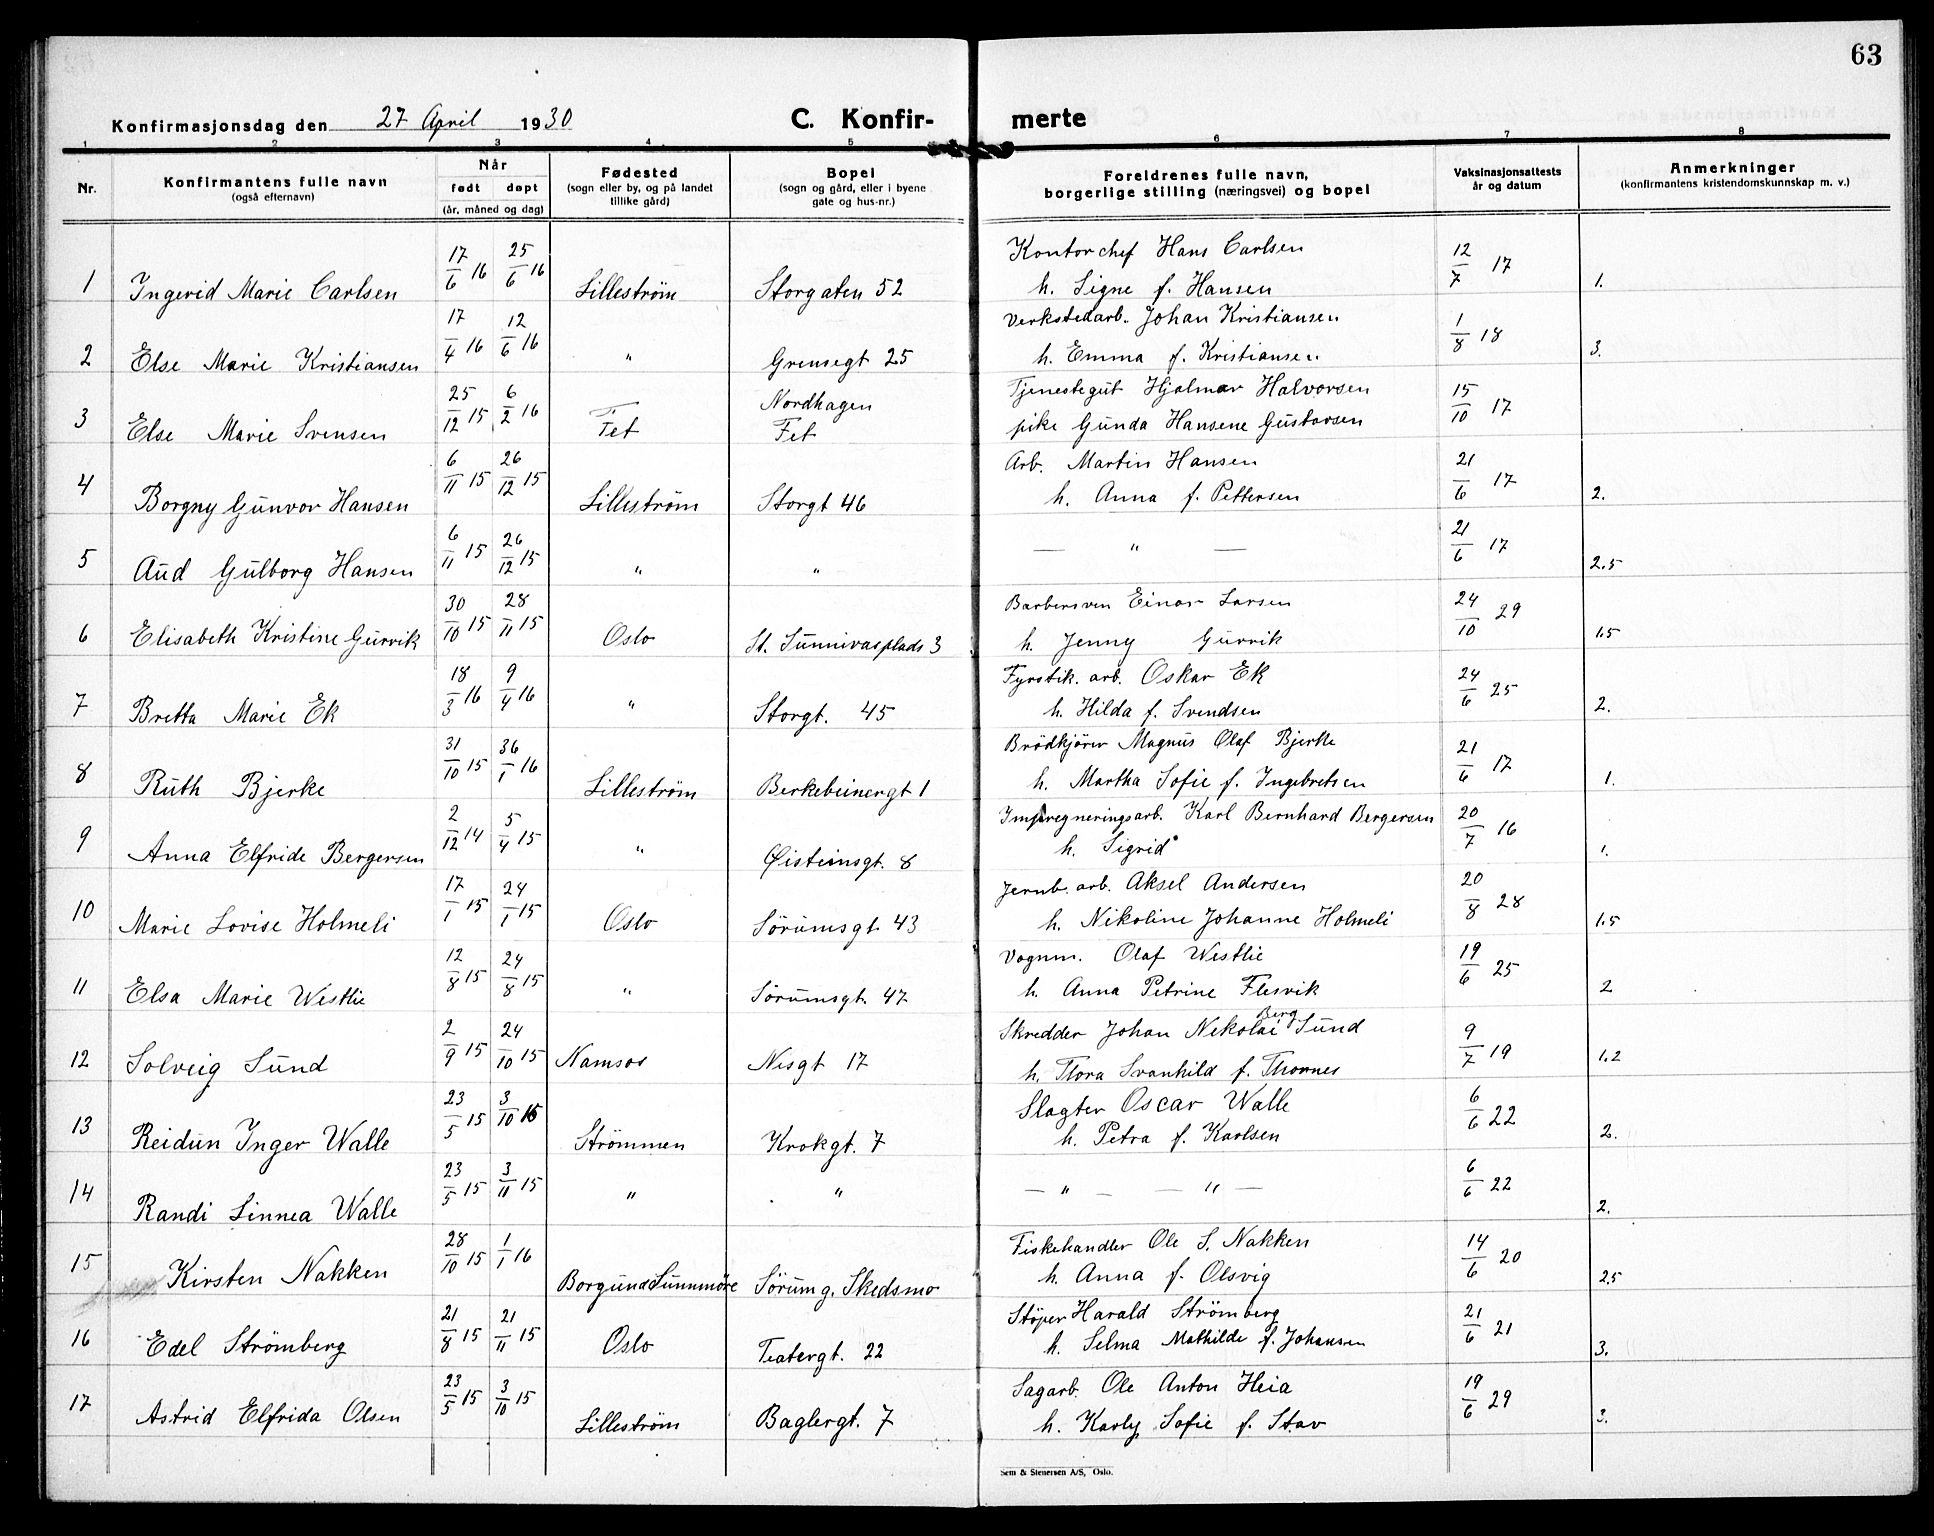 63
Konfirmasjonsdag den 27 April 1930 C. Konfir- merte
1 2 3 4 5 6 7 8
Nr. Konfirmantens fulle navn (også efternavn) Når født døpt (år, måned og dag) Fødested (sogn eller by, og på landet tillike gård) Bopel (sogn og gård, eller i byene gate og hus-nr.) Foreldrenes fulle navn, borgerlige stilling (næringsvei) og bopel Vaksinasjonsattests år og datum Anmerkninger (konfirmantens kristendomskunnskap m. v.)
1 Ingerid Marie Carlsen 17/6 16 25/6 16 Lilleström Storgaten 52 Kontorchef Hans Carlsen 12/7 17 1.
h. Signe f. Hansen
2 Else Marie Kristiansen 17/4 16 12/6 16 " Grensegt 25 Verkstedarb. Johan Kristiansen 1/8 18 3.
h. Emma f. Kristiansen
3 Else Marie Svensen 25/12 15 6/2 16 Fet Nordhagen Fet Tjenestegut Hjalmar Halvorsen 15/10 17
pike Gunda Hansene Gustavsen
4 Borgny Gunvor Hansen 6/11 15 26/12 15 Lilleström Storgt 46 Arb. Martin Hansen 21/6 17 2.
h. Anna f. Pettersen
5 Aud Gulborg Hansen 6/11 15 26/12 15 " " — " — 21/6 17 2.5
6 Elisabeth Kristine Gurvik 30/10 15 28/11 15 Oslo St. Sunnivasplads 3 Barbersven Einar Larsen 24/10 29 1.5
h. Jenny Gurvik
7 Bretta Marie Ek 18/3 16 9/4 16 " Storgt. 45 Fyrstik. arb. Oskar Ek 24/6 25 2.
h. Hilda f. Svendsen
8 Ruth Bjerke 31/10 15 36/1 16 Lilleström Berkebeinergt 1 Brödkjörer Magnus Olaf Bjerke 21/6 17 1.
h. Martha Sofie f. Ingebretsen
9 Anna Elfride Bergersen 2/12 14 5/4 15 " Øisteinsgt. 8 Impregneringsarb. Karl Bernhard Bergersen 20/7 16 1.
h. Sigrid
10 Marie Lovise Holmeli 17/1 15 24/1 15 Oslo Sörumsgt. 43 Jernb. arb. Aksel Andersen 20/8 28 1.5
h. Nikoline Johanne Holmeli
11 Elsa Marie Westlie 12/8 15 24/8 15 " Sörumsgt. 47 Vognm. Olaf Westlie 19/6 25 2
h. Anna Petrine Flesvik
12 Solveig Sund 2/9 15 24/10 15 Namsos Nisgt 17 Skredder Johan Nekolai Berg Sund 9/7 19 1.2
h. Flora Svanhild f. Thornes
13 Reidun Inger Walle 23/5 15 3/10 15 Strömmen Krokgt. 7 Slagter Oscar Walle 6/6 22 2.
h. Petra f. Karlsen
14 Randi Linnea Walle 23/5 15 3/11 15 " " — " — — " — 6/6 22 2.
15 Kirsten Nakken 28/10 15 1/1 16 Borgund Sunnmöre Sörum g. Skedsmo Fiskehandler Ole S. Nakken 14/6 20 2.5
h. Anna f. Olsvig
16 Edel Strömberg 21/8 15 21/11 15 Oslo Teatergt. 22 Støper Harald Strömberg 21/6 21 3.
h. Selma Mathilde f. Johansen
17 Astrid Elfrida Olsen 23/5 15 3/10 15 Lilleström Baglergt. 7 Sagarb. Ole Anton Heia 19/6 29 3.
h. Karly Sofie f. Stav
Sem & Stenersen A/S, Oslo.